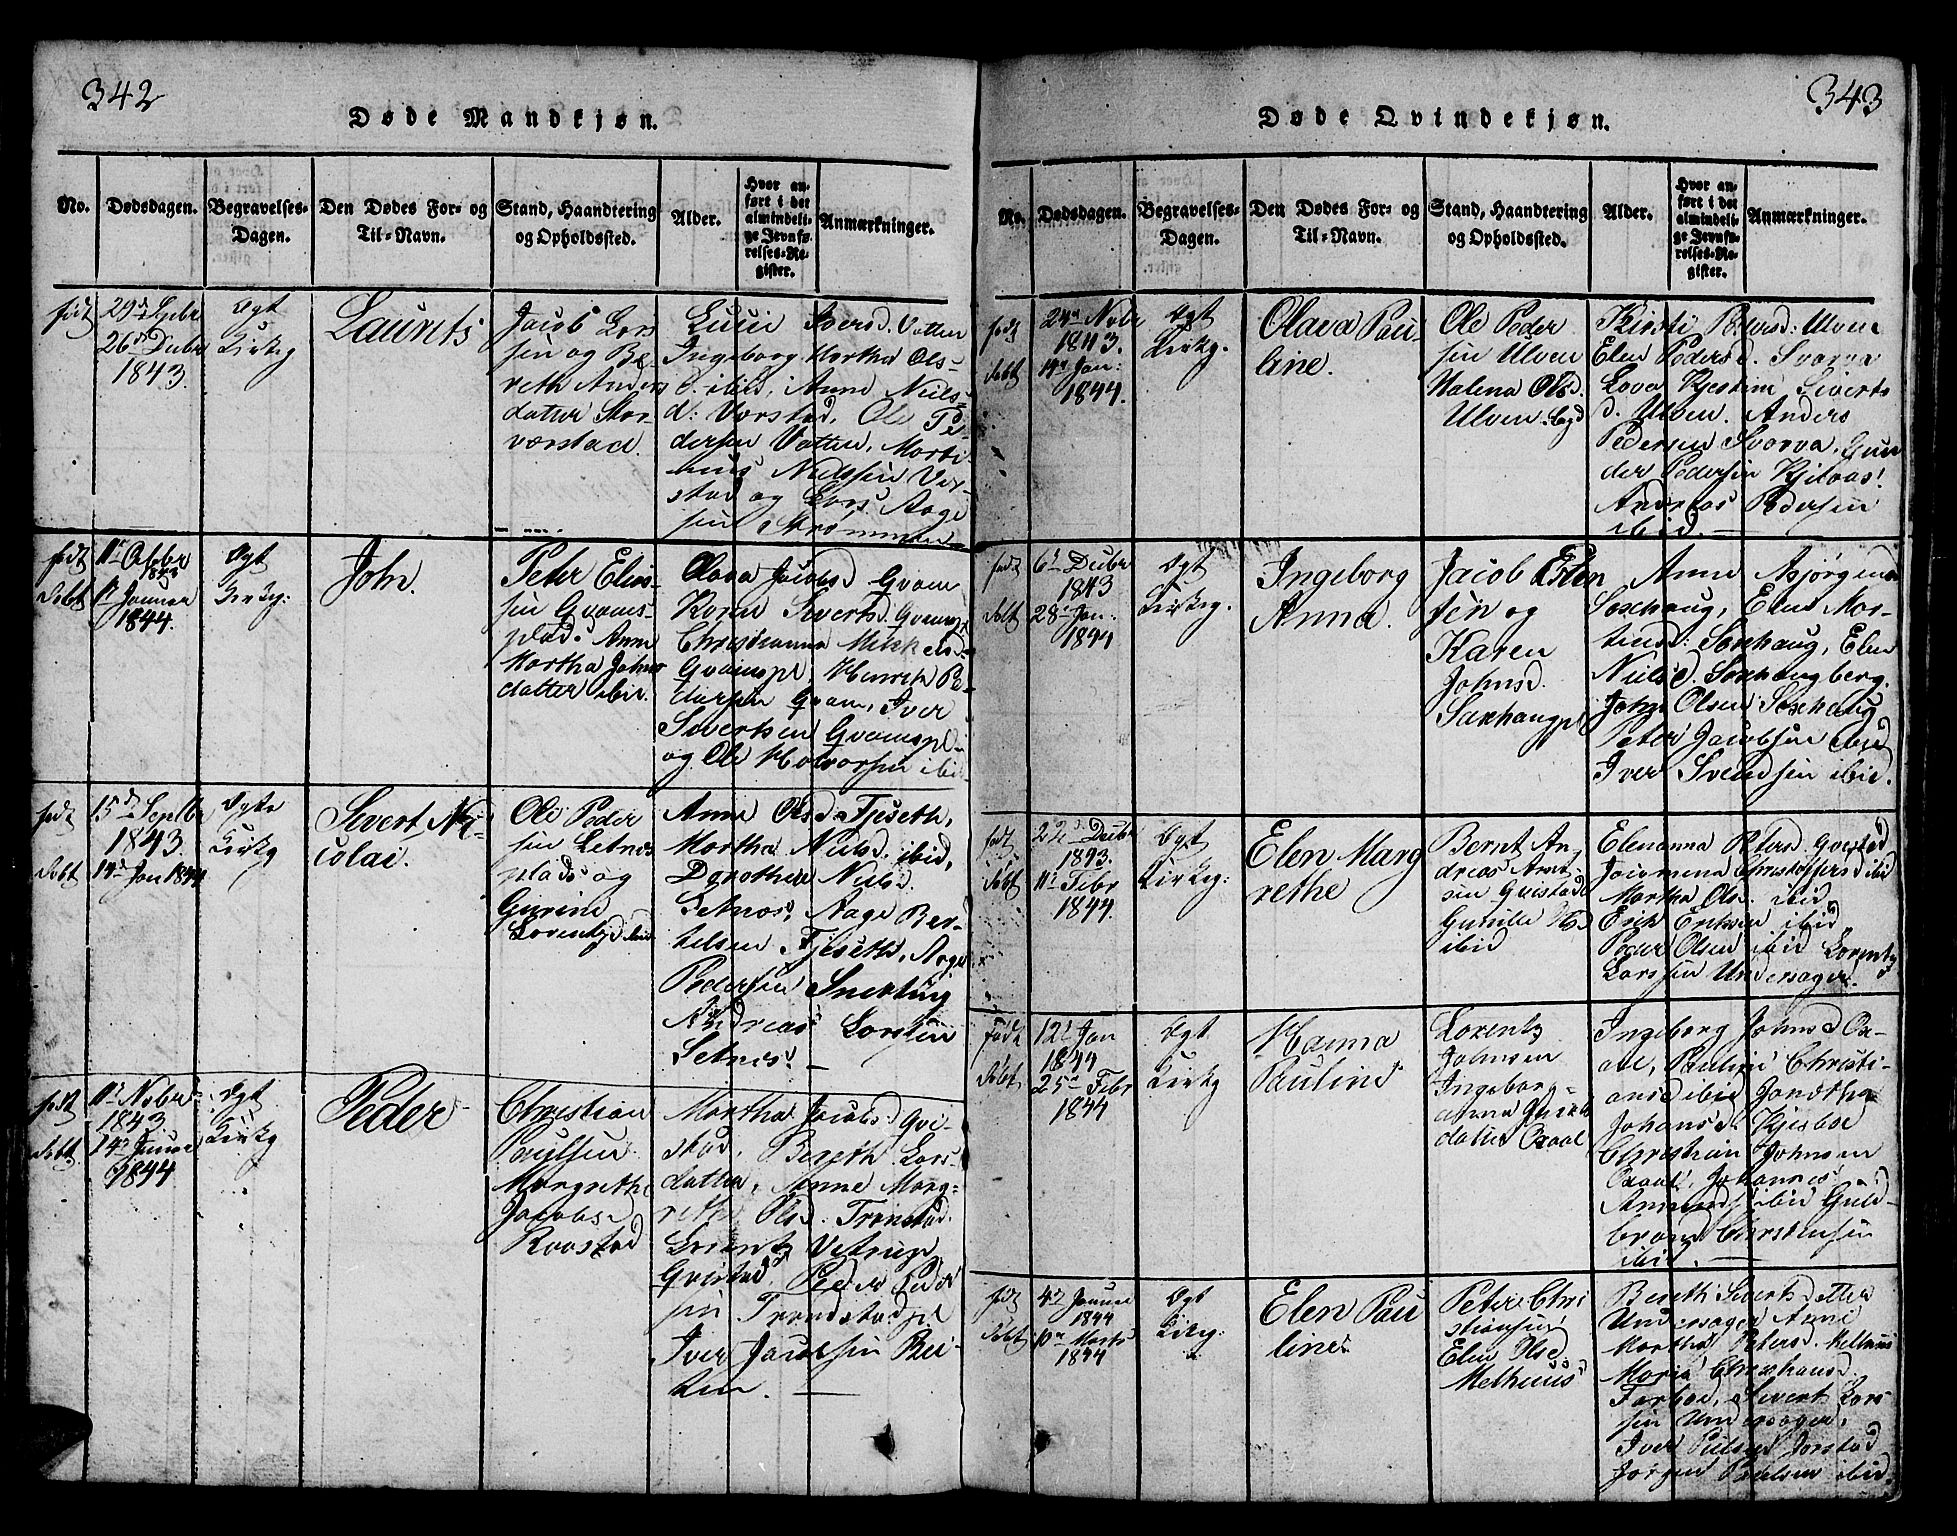 342
Døde Mandkjøn.
No.
Dødsdagen.
Begravelses-
Dagen.
Den Dødes For- og
Til-Navn.
Stand, Haandtering
og Opholdssted.
Alder.
Hvor an-
ført i det
almindeli-
ge Jevnfø-
relses-Re-
gister.
Anmærkninger.
født
26 Decbr
1843.
Ægt
Kirkeg
Laurits
Jacob Lars
sen og Be
reth Anders
datter
værstad.
Lucie Iversd. Vatten
Ingeborg Martha Ols-
d. ibid, Anne Niels-
d: Værstad, Ole Pe-
dersen Vatten, Marti-
nus Nielsen Vær-
stad og Lars Aage
sen Strømmen
født
døbt
Januar
1844.
Ægt
Kirkeg:
John.
Peter Elias
sen Qvams-
plads. Anne
Martha Johns
datter ibid.
Olava Jacobsd Qvam
Karen Sivertsd. Qvamspl
Christianna Mikkelsd
Qvamspl, Henrik Pe-
dersen Qvam, Iver
Sivertsen Qvamspl.
og Ole Halvorsen ibid
født
døbt
15d Septbr
1843.
14 Jan 1844
Ægte
Kirkeg
Sivert Ni-
colai.
Ole Peder
sen Letnes
plads og
Gurine
Lorentzd ibid
Anne Olsd. Fjeseth,
Martha Nielsd. ibid,
Dorothea Nielsd.
Letnes, Aage Ber-
thelsen Fjeseth, Aage
Pedersen Snekting
Andreas Larssen
Letnes. —
født
døbt
11 Novbr
1843
14 Januar
1844
Ægt
Kirkeg
Peder
Christian
Paulsen
Margrethe
Jacobsd
Raastad
Martha Jacobsd Qvi-
stad, Bereth Lars-
datter, Anne Marg-
rethe Olsd. Trønstad.
Lorentz
Qvistad, Peder Peder
sen Trondstadpl
Iver Jacobsen Rei-
ten. —
343
Døde Qvindekjøn.
No.
Dødsdagen.
Begravelses-
Dagen.
Den Dødes For- og
Til-Navn.
Stand, Haandtering
og Opholdssted.
Alder.
Hvor an-
ført i det
almindeli-
ge Jevnfø-
relses-Re-
gister.
Anmærkninger.
født
døbt
Novbr
1843.
14 Jan:
1844.
Ægt
Kirkeg.
Olava Pau-
line.
Ole Peder
sen Ulven
Halena Olsd.
Ulven
Kirsti Petersd: Ulven
Elen Pedersd. Svarva
Lova Kjestine Siverts
d. Ulven. Anders
Pedersen Svarva, Gun
der Pedersen
Andreas Pedersen
ibid. —
født
døbt
6 Decbr
1843
28 Jan:
1844
Ægt
Kirkeg.
Ingeborg
Anna.
Jacob Esten
sen og
Karen
Johnsd.
Saxhaugpl
Anne Asbjørgend
Saxhaug, Elen Mar-
tinsd: Saxhaug, Elen
Nielsd. Saxhaugberg.
John Olsen Saxhaug
Peter Jacobsen ibid
Iver Svendsen ibid.
født
døbt
22 Decbr
1843.
11 Febr
1844.
Ægt
Kirkeg:
Elen Marg
rethe
Bernt An-
dreas Arnt
sen Qvistad
Gunille
ibid
Elenanna Petersd Qvistad
Christophersd ibid
Martha Olsd. ibid,
Erich Ericksen ibid
Peder Olsen ibid Lorentz
Larssen Undersager.
født
døbt
12 Jan
1844
25 Febr
1844
Ægt
Kirkeg
Hanna
Pauline
Lorentz
Johnsen
Ingeborg-
anna
datter
Ingeborg Johnsd
Pauline Christi-
ansd ibid
Johansd.
Christian Johnsen
Johannes
ibid Guld-
brand Christensen
ibid. —
født
døbt
4 Januar
1844
10 Marts
1844
Ægt
Kirkeg:
Elen Pau
line
Peter Chri
stiansen
Elen Olsd
Melhuus
Bereth Sivertsdatter
Undersager Anne
Martha Petersd. Melhuus
Maria
Sivert Lars
sen Undersager,
Iver Jørstad
Jørgen Paulsen ibid.